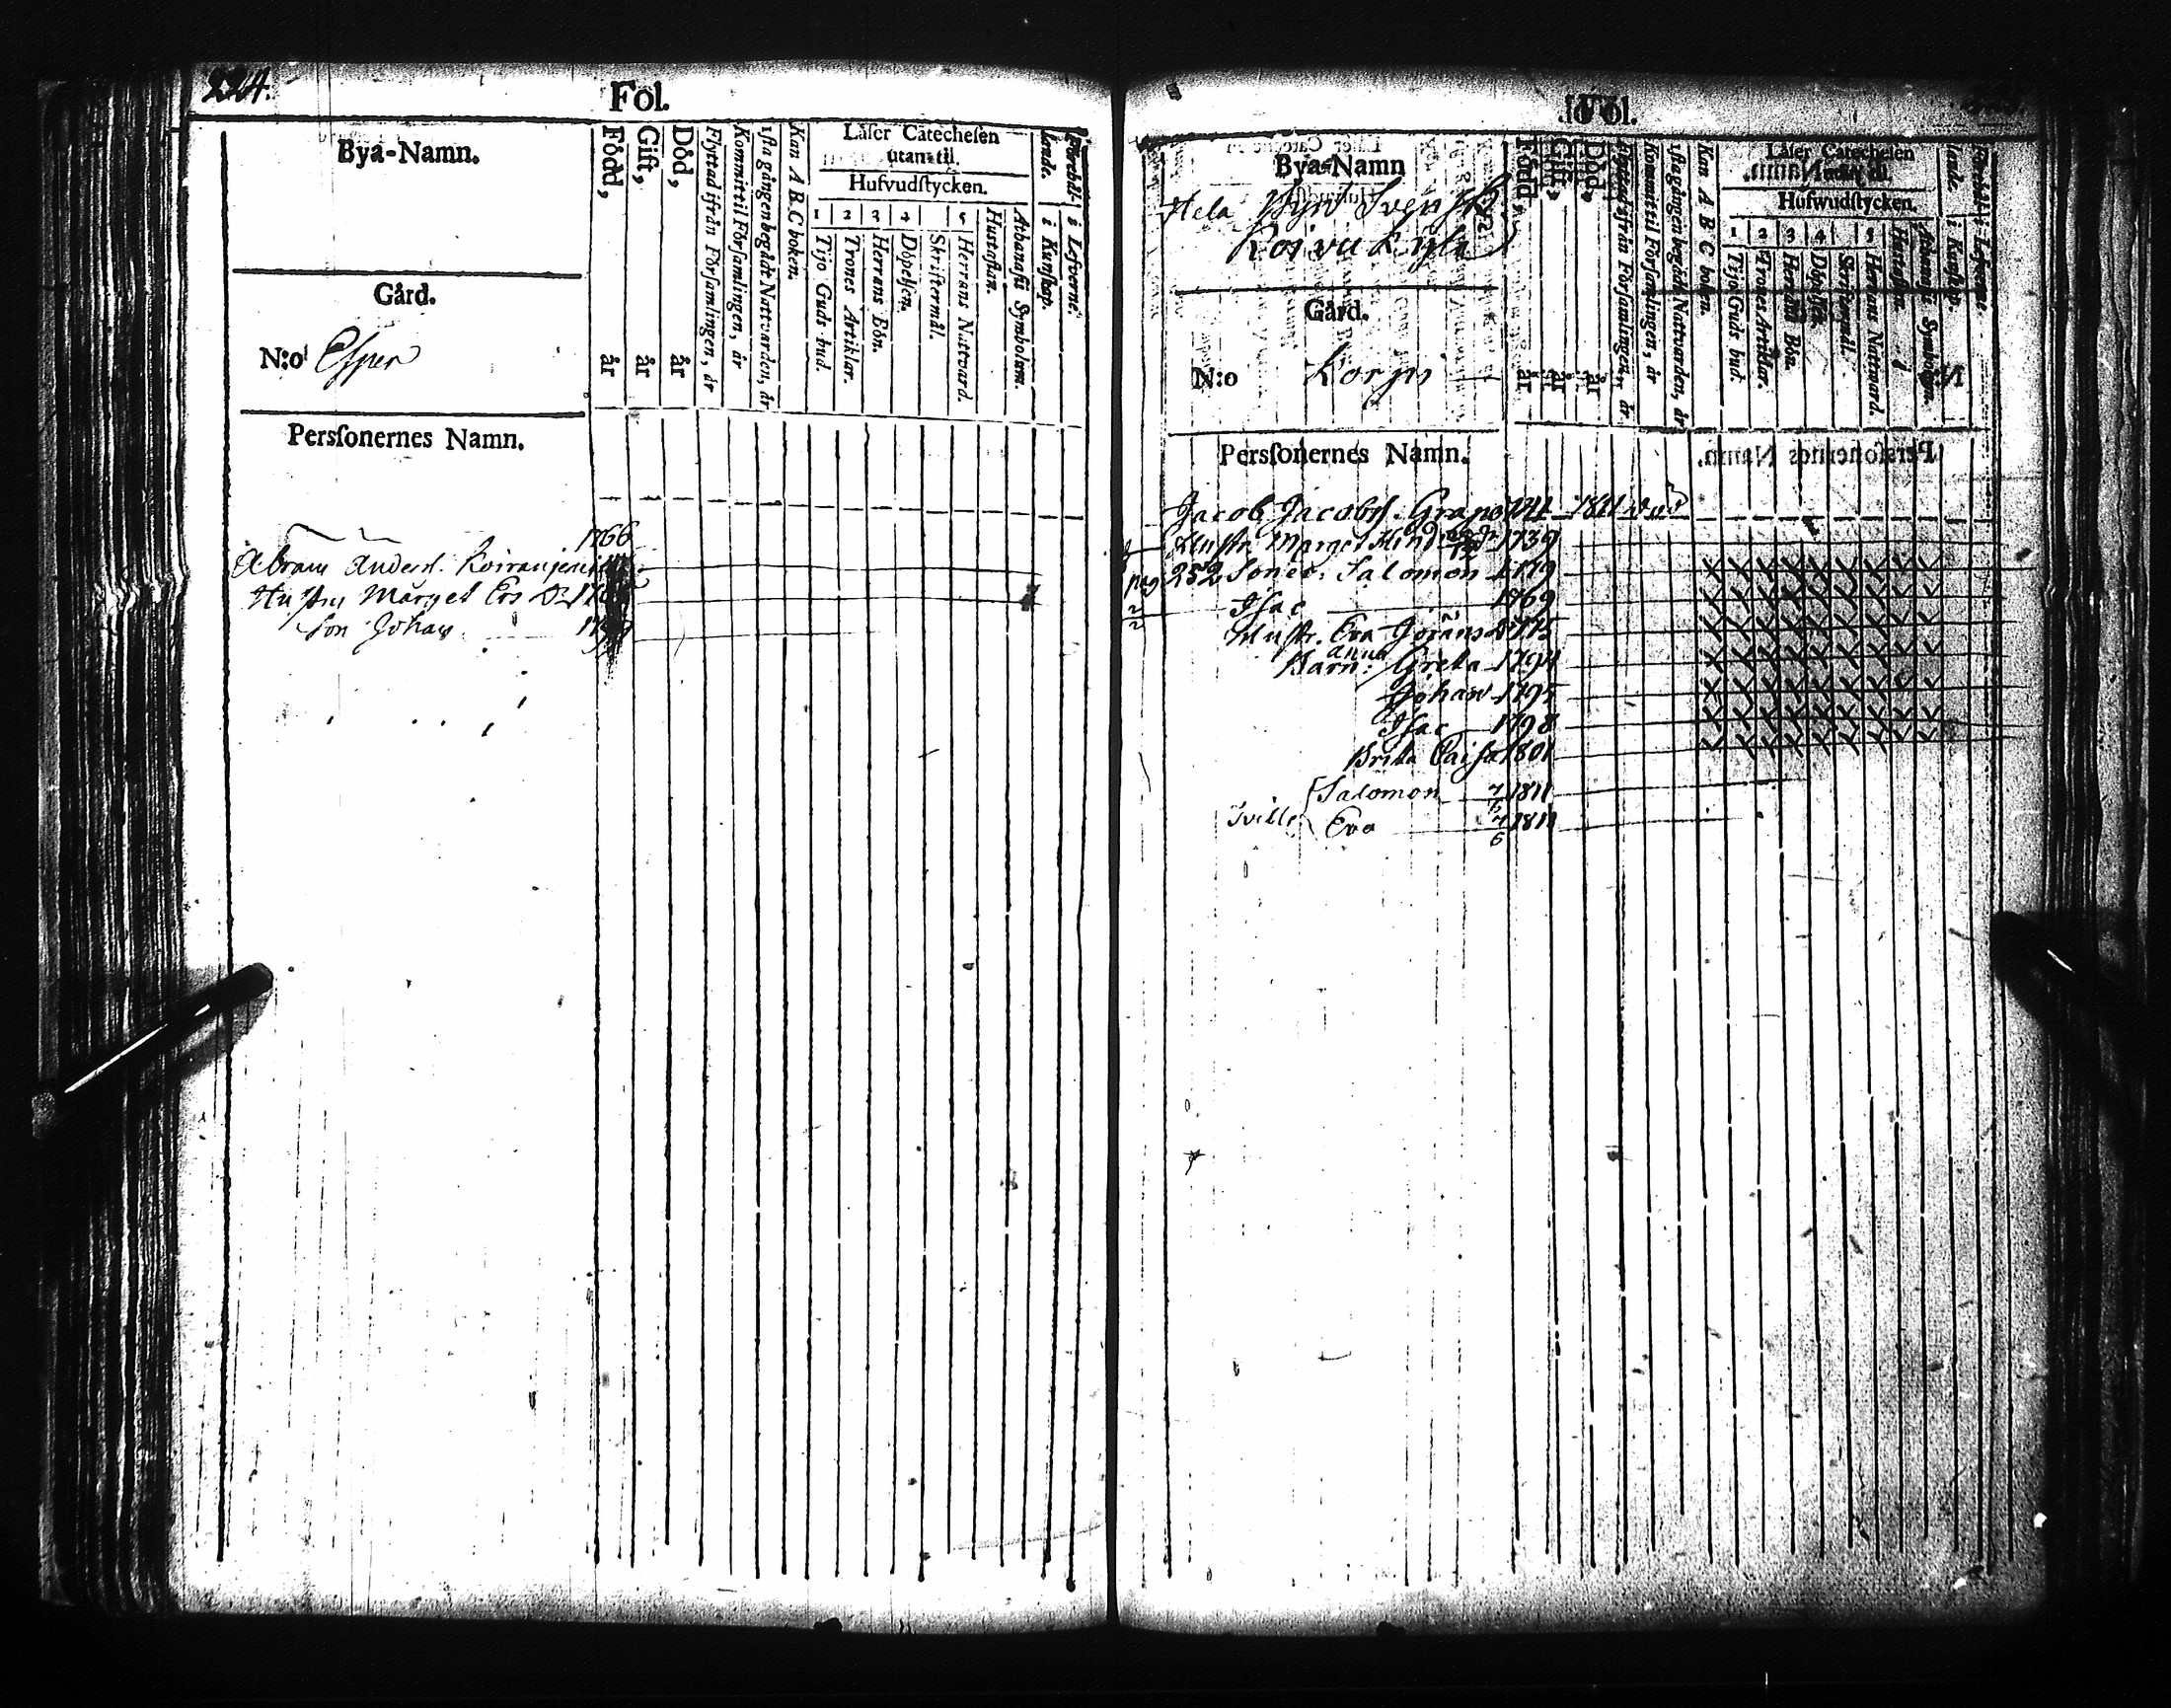 224.
Fol.
Bya-Namn.
Född, år
Gift, år
Död, år
Flyttad ifrån Församlingen, år
Kommit til Församlingen, år
1sta gången begådt Nattvarden, år
Kan A B C boken.
Läser Catechesen
utan-til.
Hufvudstycken.
1 2 3 4 5
Tijo Guds bud.
Trones Artiklar.
Herrans Bön.
Döpelsen.
Skriftermål.
Herrans Nattvard.
Hustaflan.
Athanasii Symbolum.
Förehållande.
i Kunskap.
i Lefverne.
Gård.
N:o Esper
Personernes Namn.
1766
Abram Anders.
Hustru Marget Ers D:r
Son Johan
Fol.
Bya-Namn
Hela Byn Svensk
Koivukylä
Född, år
Gift, år
Död, år
Flyttad ifrån Församlingen, år
Kommit til Församlingen, år
1sta gången begådt Nattvarden, år
Kan A B C boken.
Läser Catechesen
Hufwudstycken.
1 2 3 4 5
Tijo Guds bud.
Trones Artiklar.
Herrans Bön.
Döpelsen.
Skriftermål.
Herrans Nattward.
Hustaflan.
Athanasii Symbolum.
i Kunskap.
i Lefverne.
Gård.
N:o Korpi
Personernes Namn.
Jacob Jacobss. Grape 1741 1811 död
Hustr. Marget Hind 1739
pag 252 Söner: Salomon 1779
Isac 1769
Hustr. Eva Jörans D 1775
Barn: Anna Greta 1794
Johan 1795
Isac 1798
Brita Caisa 1801
Salomon 7/6 1811
Tvill: Eva 7/6 1811